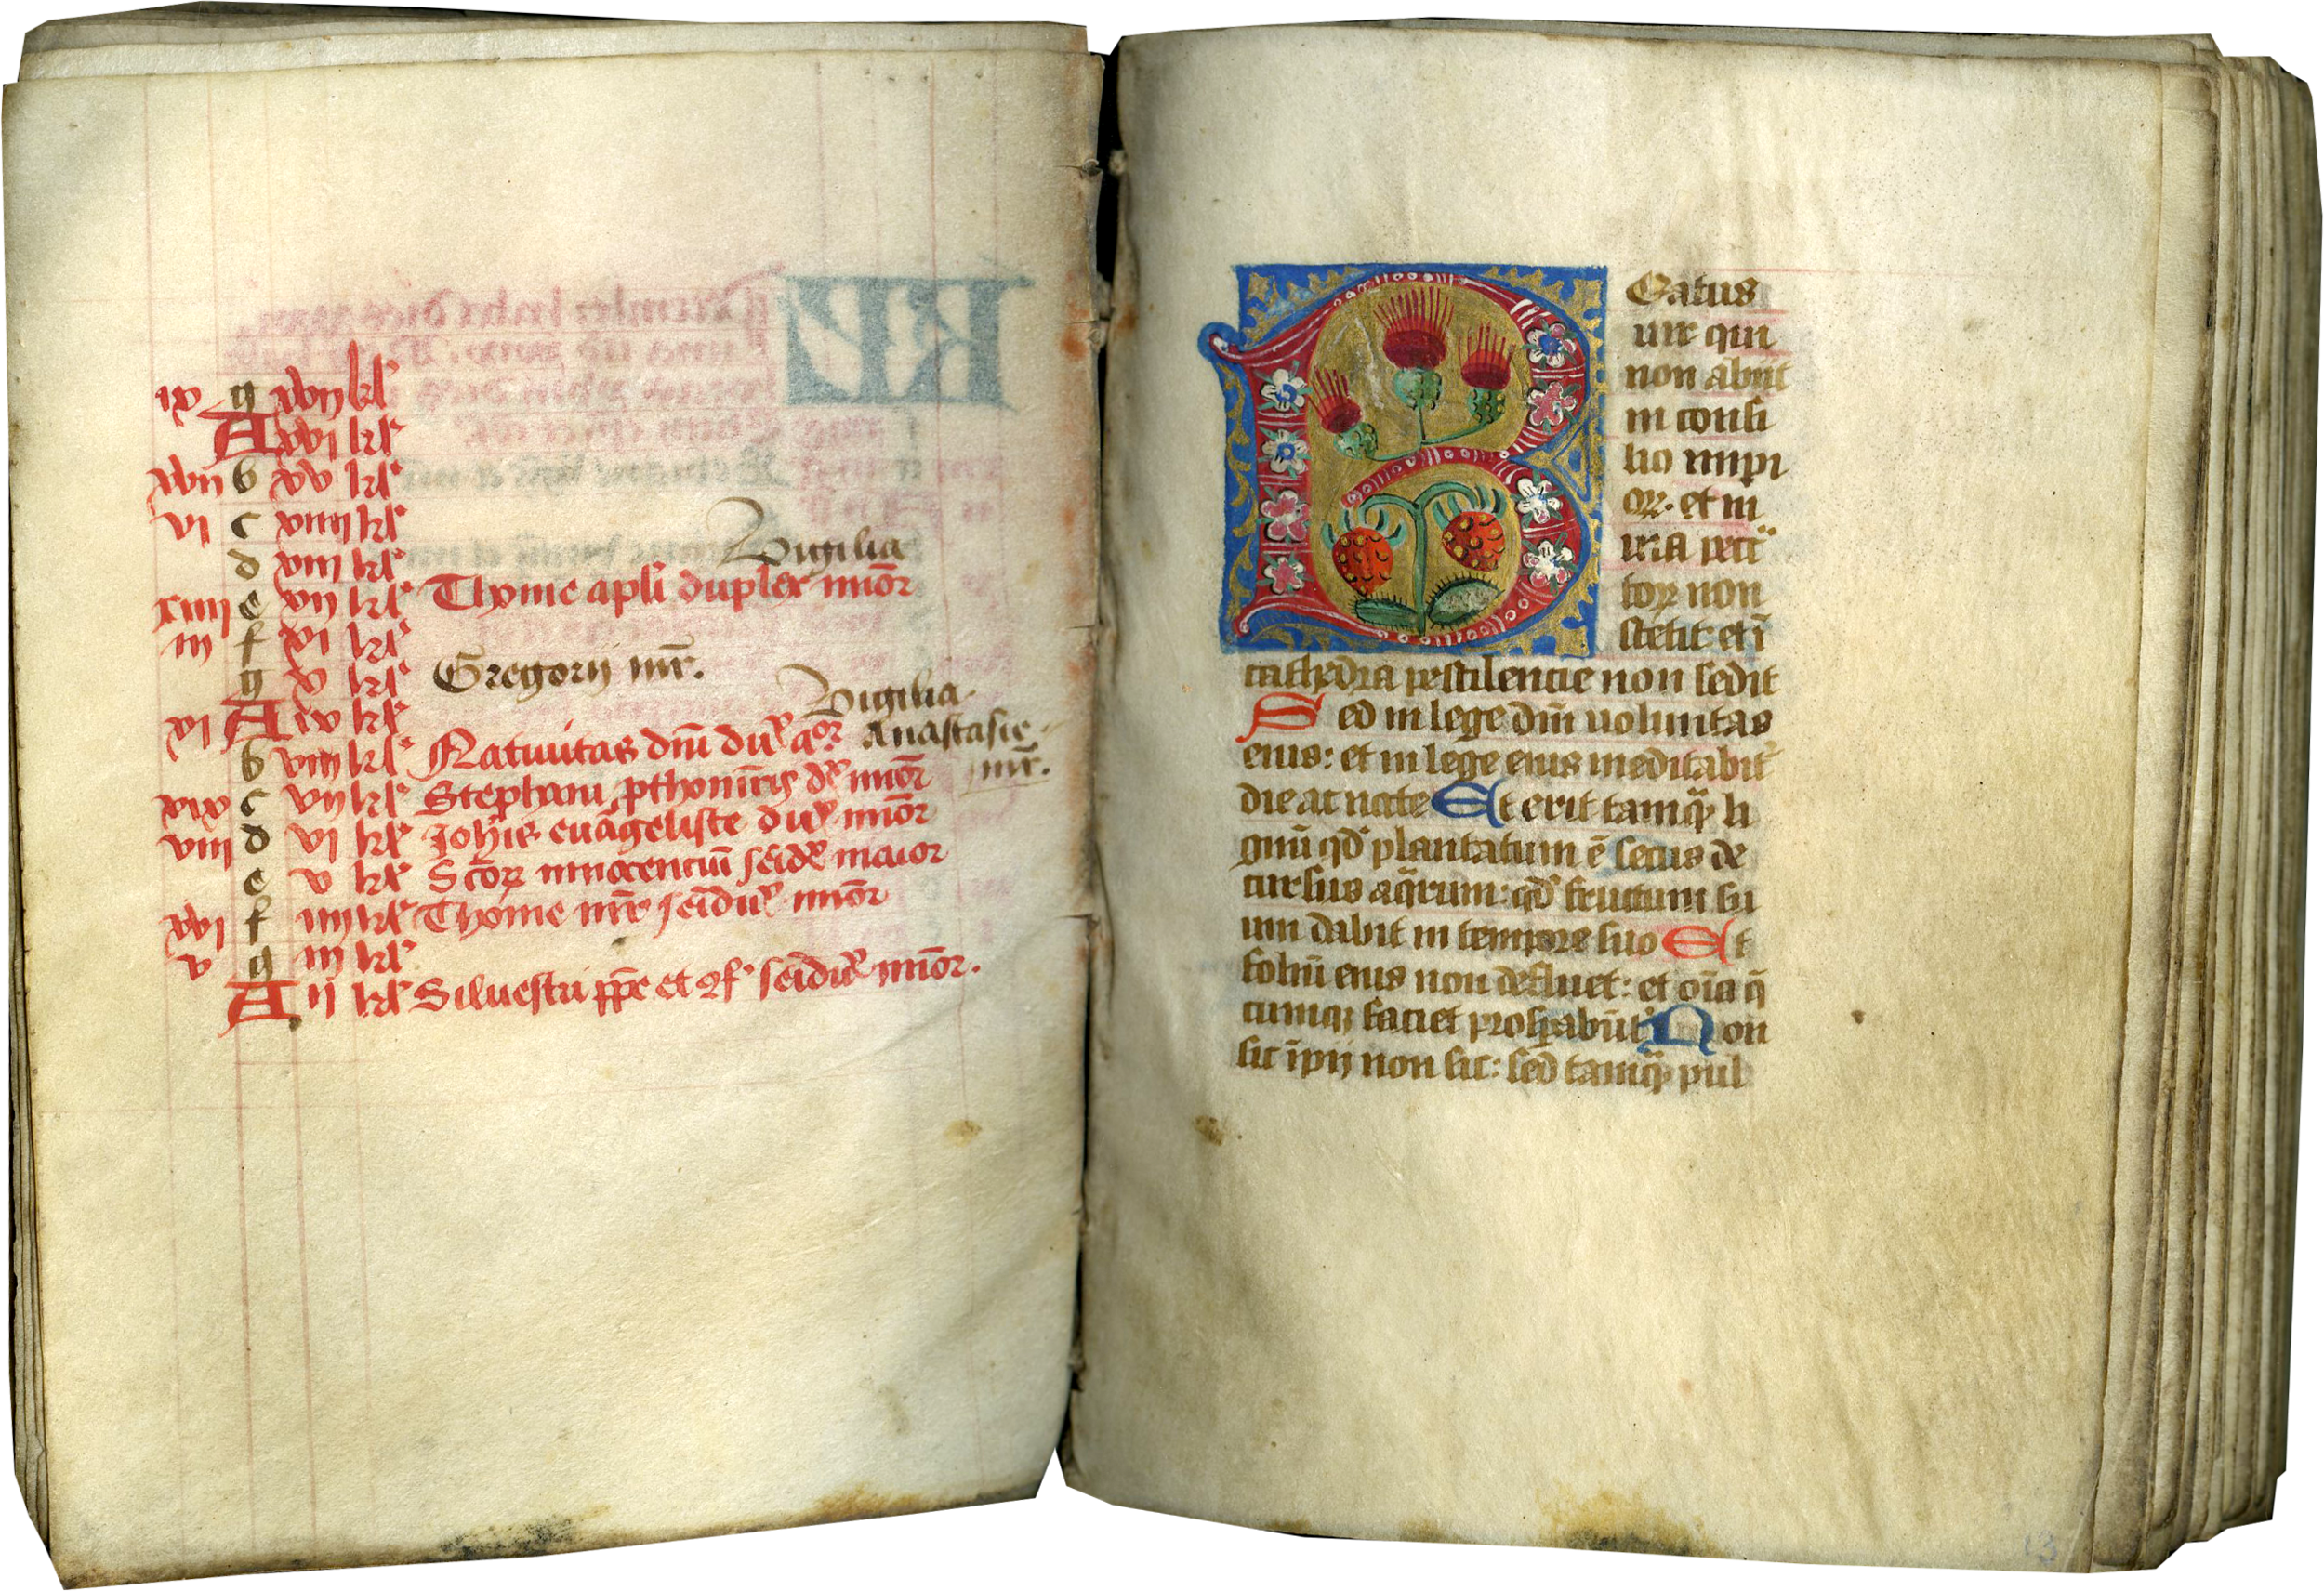 ix g xvii kl'
A xvi kl'
xvii b xv kl'
vi c xiiii kl'
d xiii kl' Vigilia
xiiii e xii kl' Thome apl'i duplex minōr
iii f xi kl'
g x kl' Gregorij mr̄.
xi A ix kl' Vigilia.
b viii kl' Natiuitas dn̄i du' Anastasie
mr̄.
xix c vii kl' Stephani pthomr̄is d' minōr
viii d vi kl' Joh'is euāgeliste du' minōr
e v kl' Sc̄oꝝ innocenciū maior
xvi f iiii kl' Thome mr̄ minōr
v g iii kl'
A ii kl' Siluestri pp̄e et ɔf' minōr.
Beatus
uir qui
non abiit
in consi
lio impi
oꝝ. et in
uia pecc̄
toꝝ non
stetit et ī
cathedra pestilencie non sedit
Sed in lege dn̄i uoluntas
eius: et in lege eius meditabit'
die ac nocte Et erit tamq̄ li
gnū qd' plantatum ē secus de
cursus aq̄rum: qd' fructum su
um dabit in tempore suo Et
foliū eius non defluet: et oīa q̄
cumqꝫ faciet prosꝑabūt' Non
sic īpij non sic: sed tamq̄ pul
13